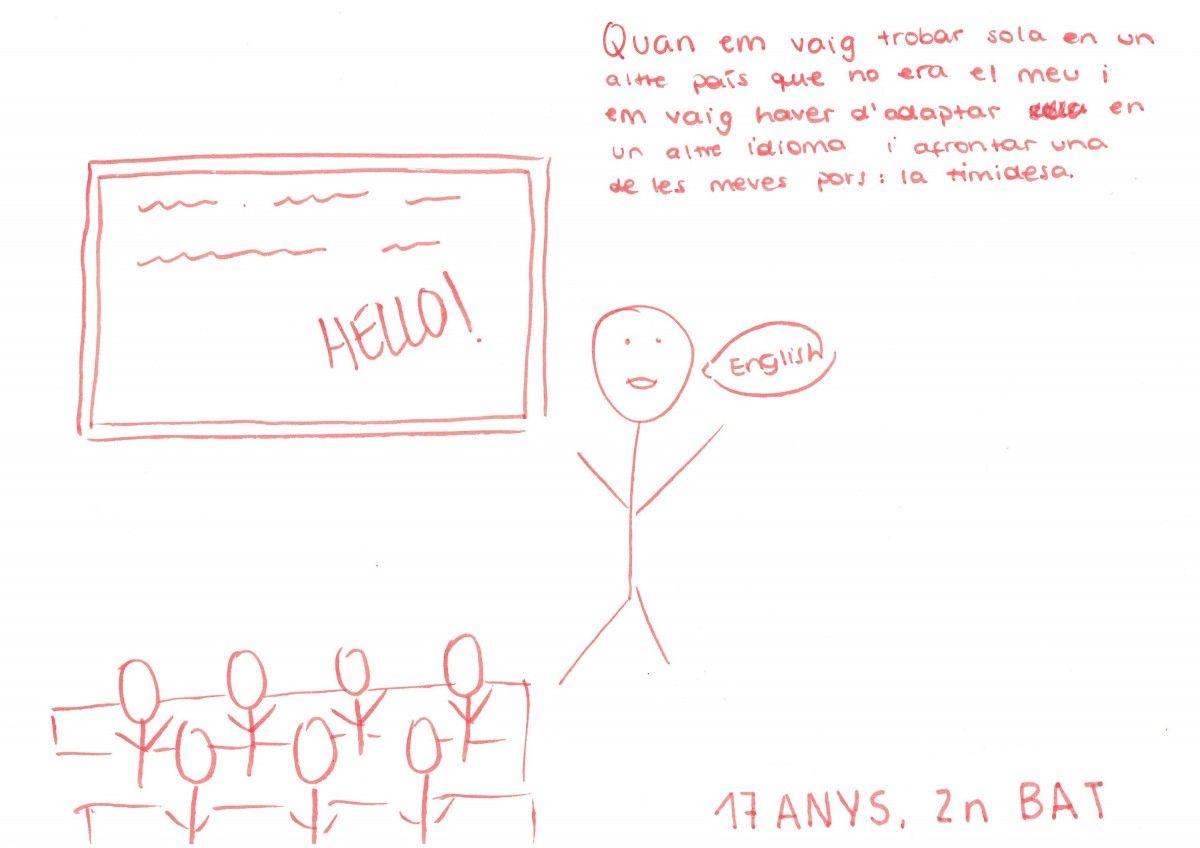 Quan em vaig trobar sola en un
altre país que no era el meu i
em vaig haver d'adaptar en
un altre idioma i afrontar una
de les meves pors: la timidesa.
HELLO!
English
17 ANYS, 2n BAT